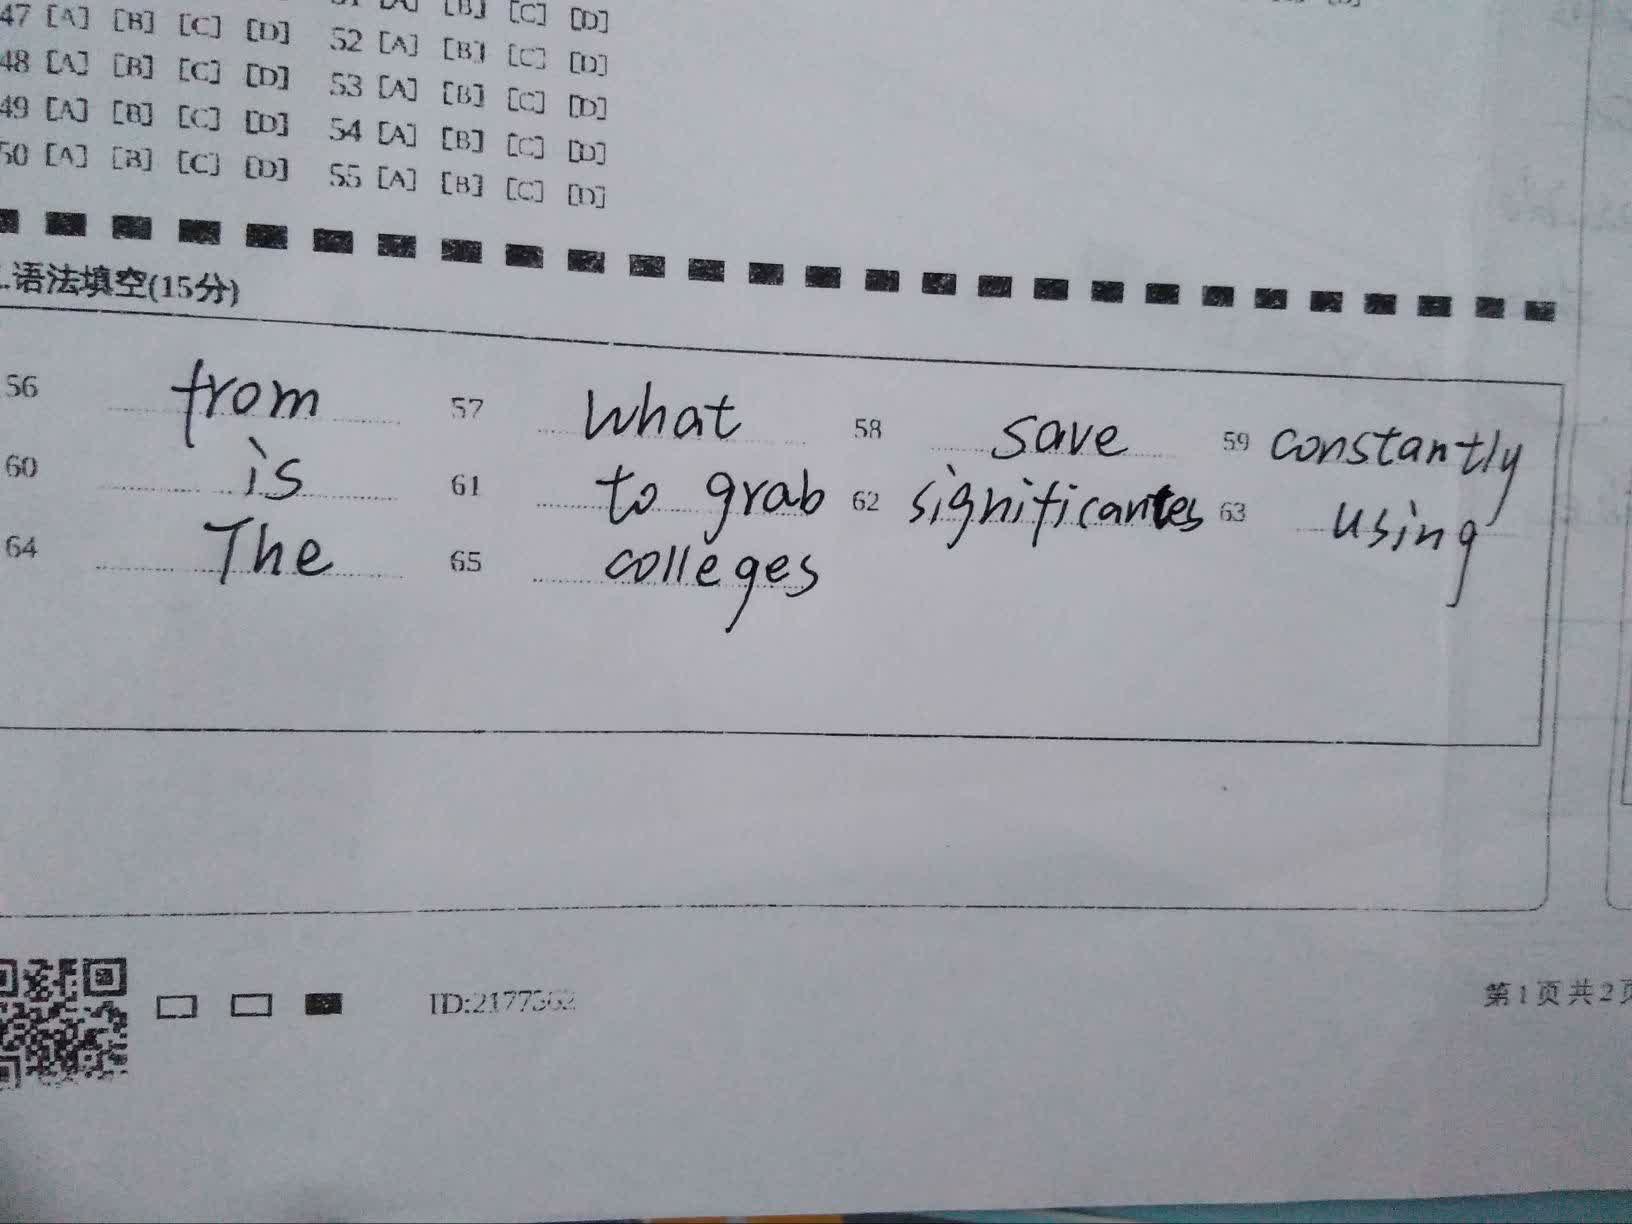 47 [A] [B] [C] [D] 52 [A] [B] [C] [D]
48 [A] [B] [C] [D] 53 [A] [B] [C] [D]
49 [A] [B] [C] [D] 54 [A] [B] [C] [D]
50 [A] [B] [C] [D] 55 [A] [B] [C] [D]
.语法填空(15分)
56 from 57 what 58 save 59 constantly
60 is 61 to grab 62 significantes 63 using
64 The 65 colleges
ID:2177562
第1页共2页